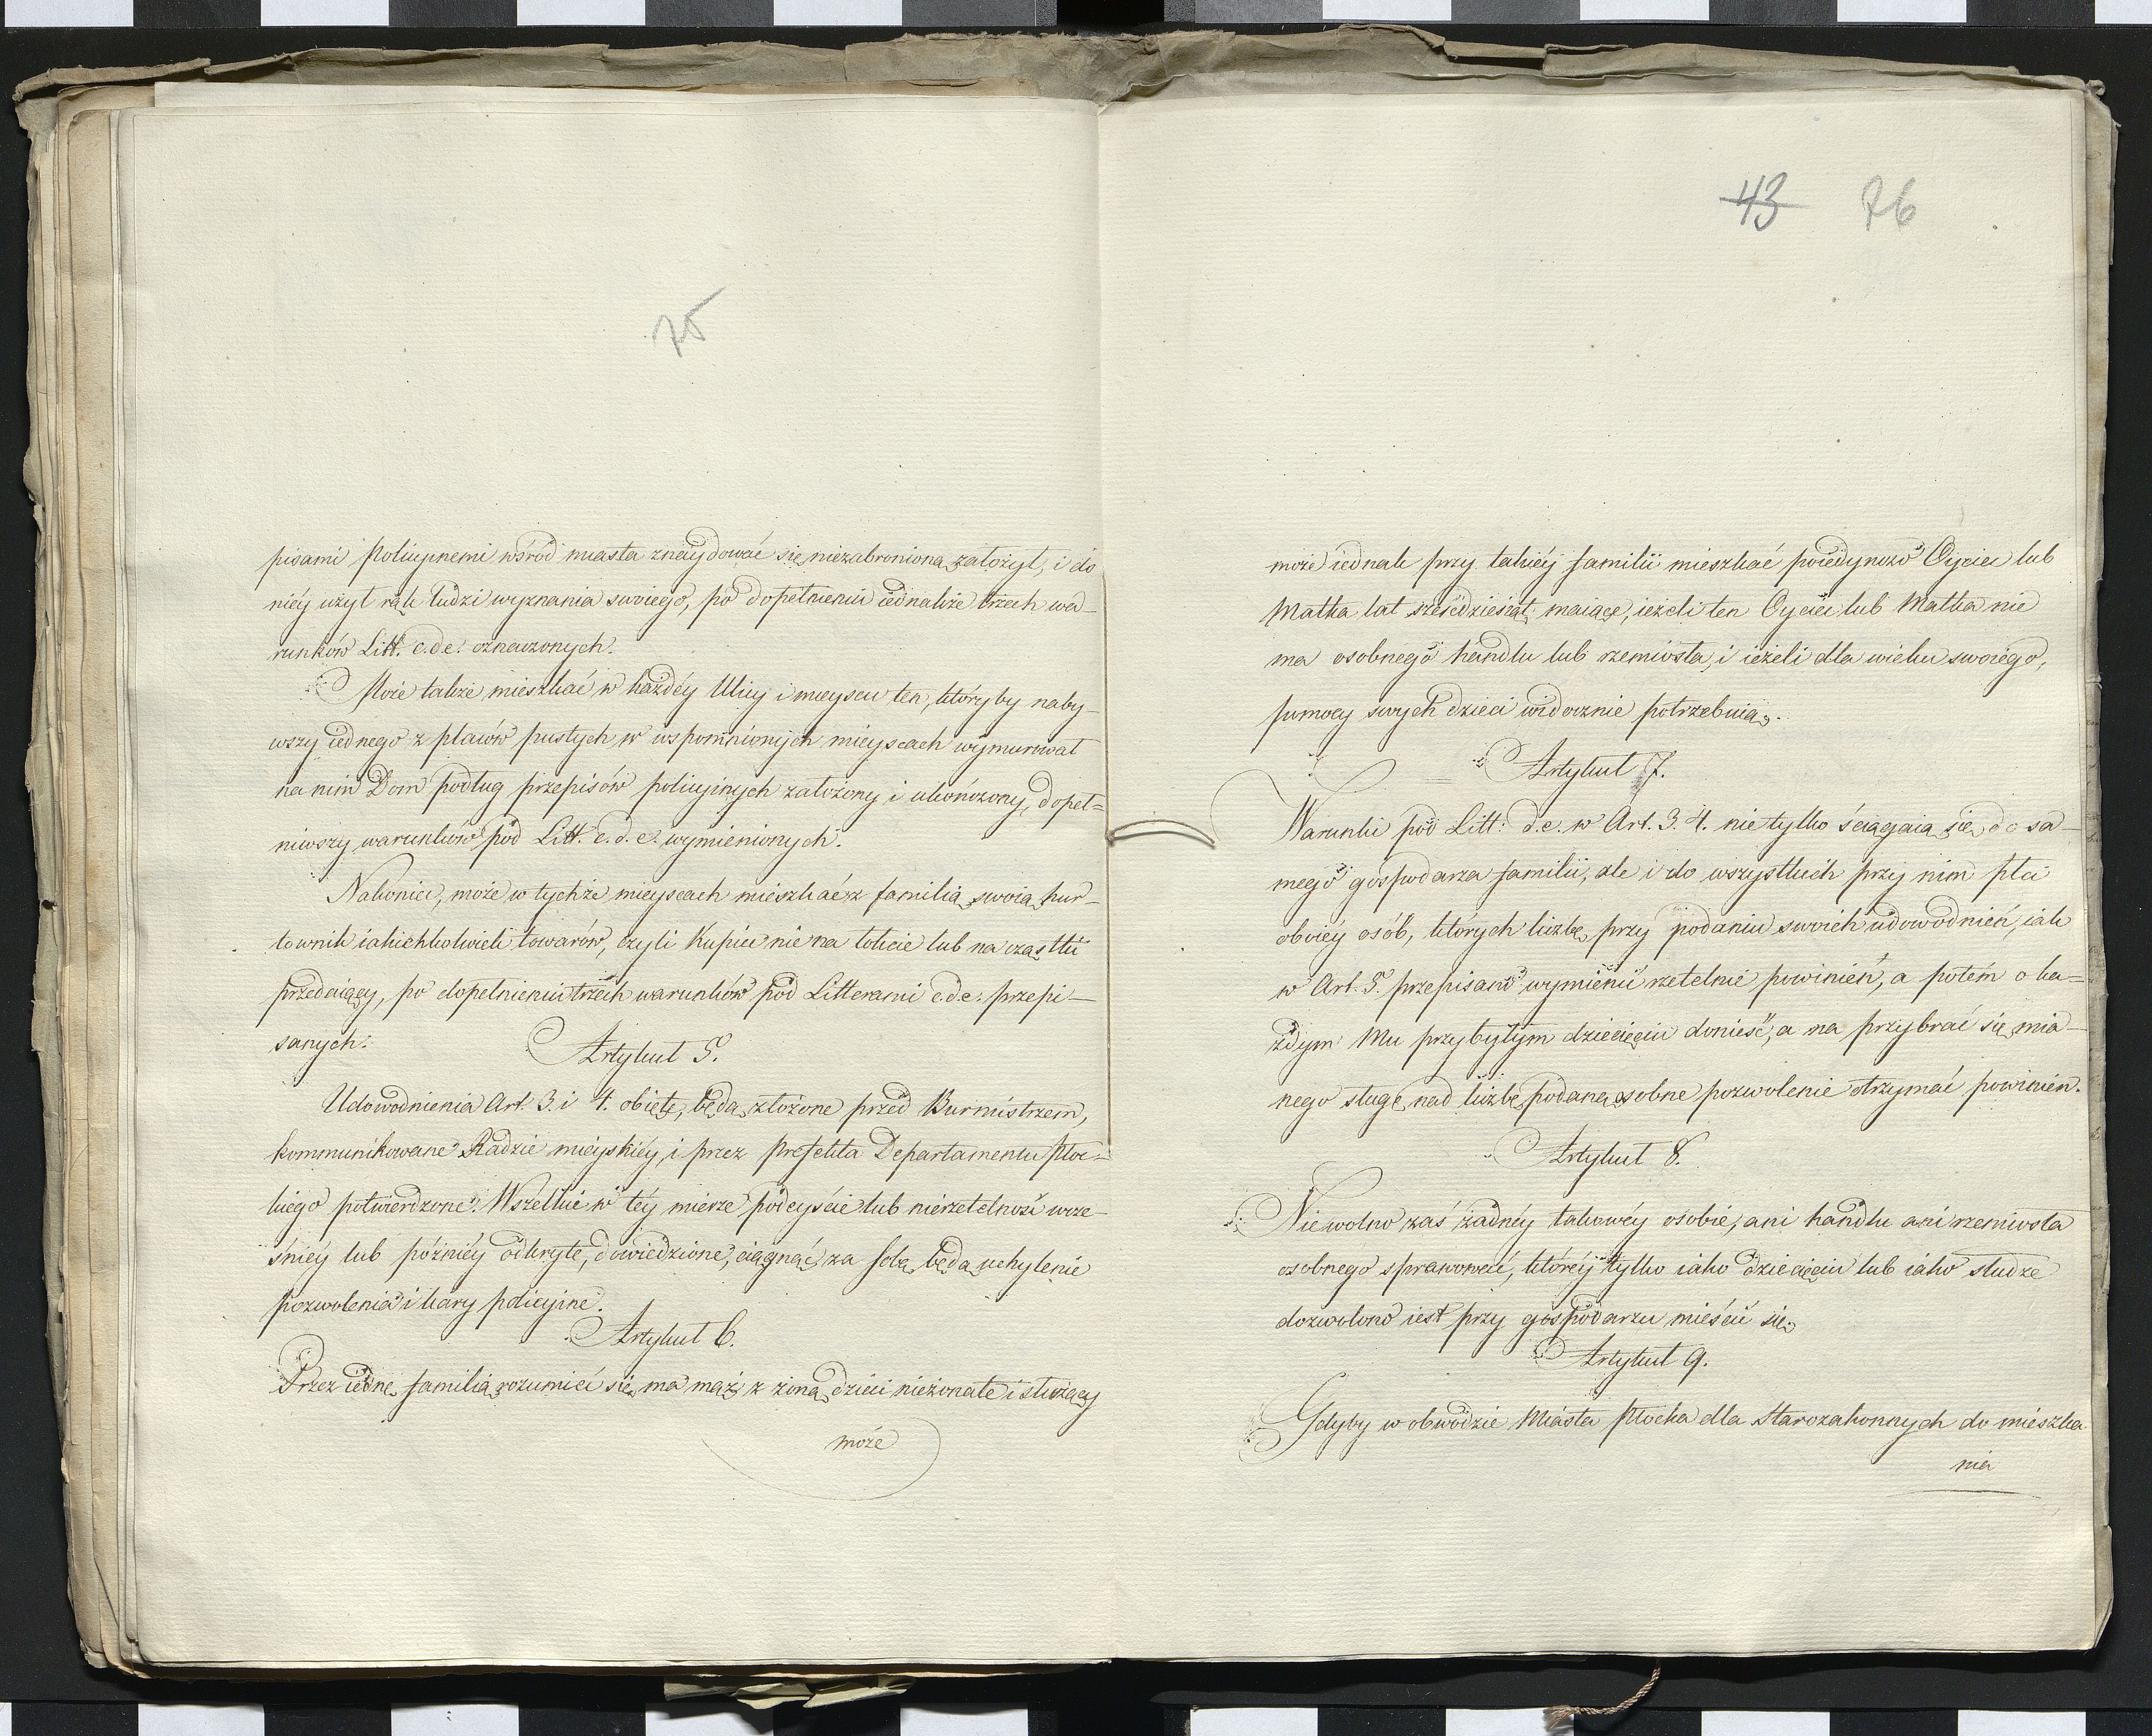 75
pisami Policyinemi wśród miasta znaydować się niezabronioną założył, i do
niéy użył rąk ludzi wyznania swoiego, po dopełnieniu iednakże trzech wa-
runków Litt. c. d. e. oznaczonych.
Może także mieszkać w każdéy Ulicy i mieyscu ten, któryby naby-
wszy iednego z placów pustych w wspomnionych mieyscach wymurował
na nim Dom podług przepisów policyinych założony i ukończony, dopeł-
niwszy warunków pod Litt. c. d. e. wymienionych.
Nakoniec, może w tychże mieyscach mieszkać z familią swoią hur-
townik iakichkolwiek towarów, czyli Kupiec nie na łokcie lub na cząstki
przedaiący, po dopełnieniu trzech warunków pod Litterami c. d. e. przepi-
sanych.
Artykuł 5.
Udowodnienia Art. 3. i 4. obięte, będą złożone przed Burmistrzem,
kommunikowane Radzie mieyskiéy, i przez Prefekta Departamentu Płoc-
kiego potwierdzone. Wszelkie w téy mierze podeyście lub nierzetelność wcze-
śniéy lub późniéy odkryte, dowiedzione, ciągnąć za sobą będą uchylenie
pozwolenia i kary policyine.
Artykuł 6.
Przez iednę familią rozumieć się ma mąż z żoną dzieci nieżonate i służący
może
43 76
może iednak przy takiéy familii mieszkać poiedynczo Oyciec lub
Matka lat sześćdziesiąt maiące, ieżeli ten Oyciec lub Matka nie
ma osobnego handlu lub rzemiosła, i ieżeli dla wieku swoiego,
pomocy swych dzieci widocznie potrzebuią.
Artykuł 7.
Warunki pod Litt: d. e. w Art. 3. 4. nie tylko ściągaią się do sa-
mego gospodarza familii, ale i do wszystkich przy nim płci
oboiéy osób, których liczbę przy podaniu swoich udowodnień, iak
w Art. 5. przepisano wymienić rzetelnie powinien, a potém o ka-
żdym Mu przybyłym dziecięciu donieść, a na przybrać się mia-
nego sługę nad liczbę podaną osobne pozwolenie otrzymać powinien.
Artykuł 8.
Niewolno zaś żadnéy takowéy osobie, ani handlu ani rzemiosła
osobnego sprawować, któréy tylko iako dziecięciu lub iako słudze
dozwolono iest przy gospodarzu mieścić się.
Artykuł 9.
Gdyby w obwodzie Miasta Płocka dla Starozakonnych do mieszka
nia